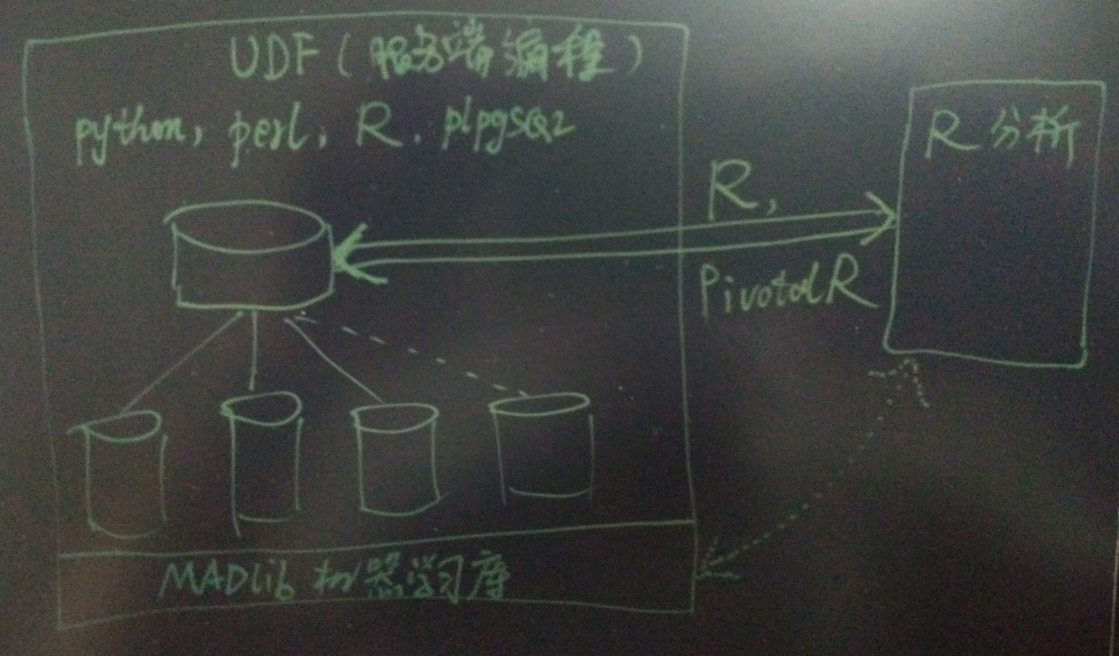 UDF（服务端编程）
python, perl, R, plpgsql
R分析
R,
PivotalR
MADlib 机器学习库